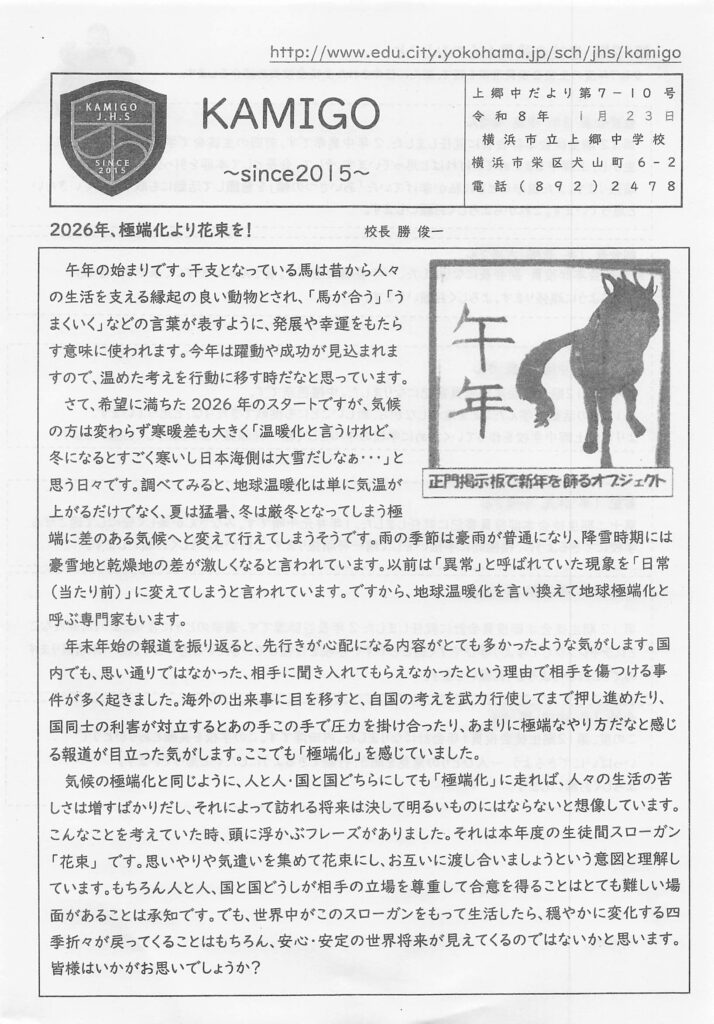 http://www.edu.city.yokohama.jp/sch/jhs/kamigo
KAMIGO
J.H.S
SINCE
2015
KAMIGO
～since2015～
上郷中だより第7－10号
令和8年 1月 23日
横浜市立上郷中学校
横浜市栄区犬山町 6－2
電話(892)2478
2026年、極端化より花束を！ 校長 勝 俊一
午年の始まりです。干支となっている馬は昔から人々
の生活を支える縁起の良い動物とされ、「馬が合う」「う
まくいく」などの言葉が表すように、発展や幸運をもたら
す意味に使われます。今年は躍動や成功が見込まれま
すので、温めた考えを行動に移す時だなと思っています。
さて、希望に満ちた 2026 年のスタートですが、気候
の方は変わらず寒暖差も大きく「温暖化と言うけれど、
冬になるとすごく寒いし日本海側は大雪だしなぁ・・・」と
思う日々です。調べてみると、地球温暖化は単に気温が
上がるだけでなく、夏は猛暑、冬は厳冬となってしまう極
午年
正門掲示板で新年を飾るオブジェクト
端に差のある気候へと変えて行えてしまうそうです。雨の季節は豪雨が普通になり、降雪時期には
豪雪地と乾燥地の差が激しくなると言われています。以前は「異常」と呼ばれていた現象を「日常
（当たり前）」に変えてしまうと言われています。ですから、地球温暖化を言い換えて地球極端化と
呼ぶ専門家もいます。
年末年始の報道を振り返ると、先行きが心配になる内容がとても多かったような気がします。国
内でも、思い通りではなかった、相手に聞き入れてもらえなかったという理由で相手を傷つける事
件が多く起きました。海外の出来事に目を移すと、自国の考えを武力行使してまで押し進めたり、
国同士の利害が対立するとあの手この手で圧力を掛け合ったり、あまりに極端なやり方だなと感じ
る報道が目立った気がします。ここでも「極端化」を感じていました。
気候の極端化と同じように、人と人・国と国どちらにしても「極端化」に走れば、人々の生活の苦
しさは増すばかりだし、それによって訪れる将来は決して明るいものにはならないと想像しています。
こんなことを考えていた時、頭に浮かぶフレーズがありました。それは本年度の生徒間スローガン
「花束」 です。思いやりや気遣いを集めて花束にし、お互いに渡し合いましょうという意図と理解し
ています。もちろん人と人、国と国どうしが相手の立場を尊重して合意を得ることはとても難しい場
面があることは承知です。でも、世界中がこのスローガンをもって生活したら、穏やかに変化する四
季折々が戻ってくることはもちろん、安心・安定の世界将来が見えてくるのではないかと思います。
皆様はいかがお思いでしょうか？